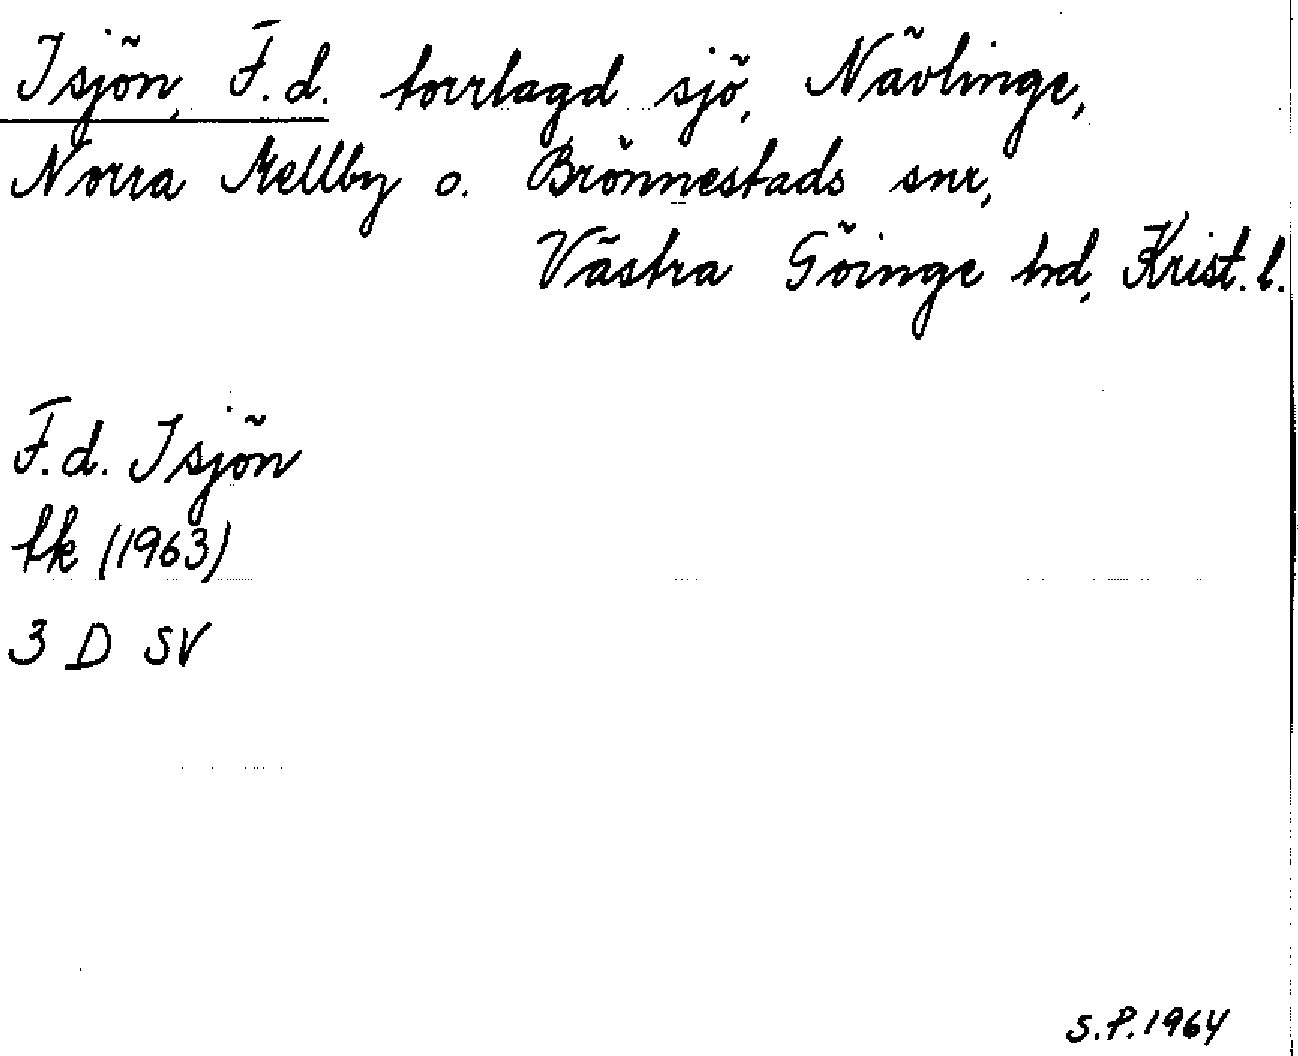 Isjön, F.d. torrlagd sjö, Nävlinge,
Norra Mellby o. Brönnestads snr,
Västra Göinge hd, Krist. l.
F.d. Isjön
tk (1963)
3 D SV
S.P. 1964